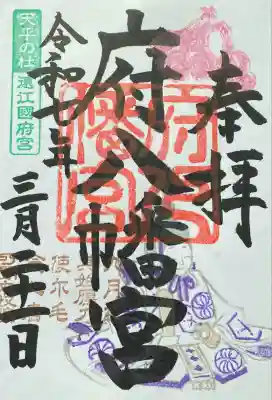 奉拝
府八幡宮
令和七年
三月二十一日
天平の杜
遠江國府宮
使尓毛